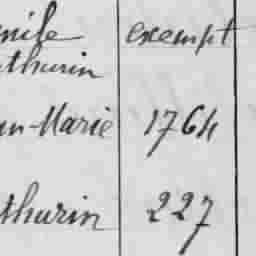 exempt
thurin
an-Marie 1764
thurin 227